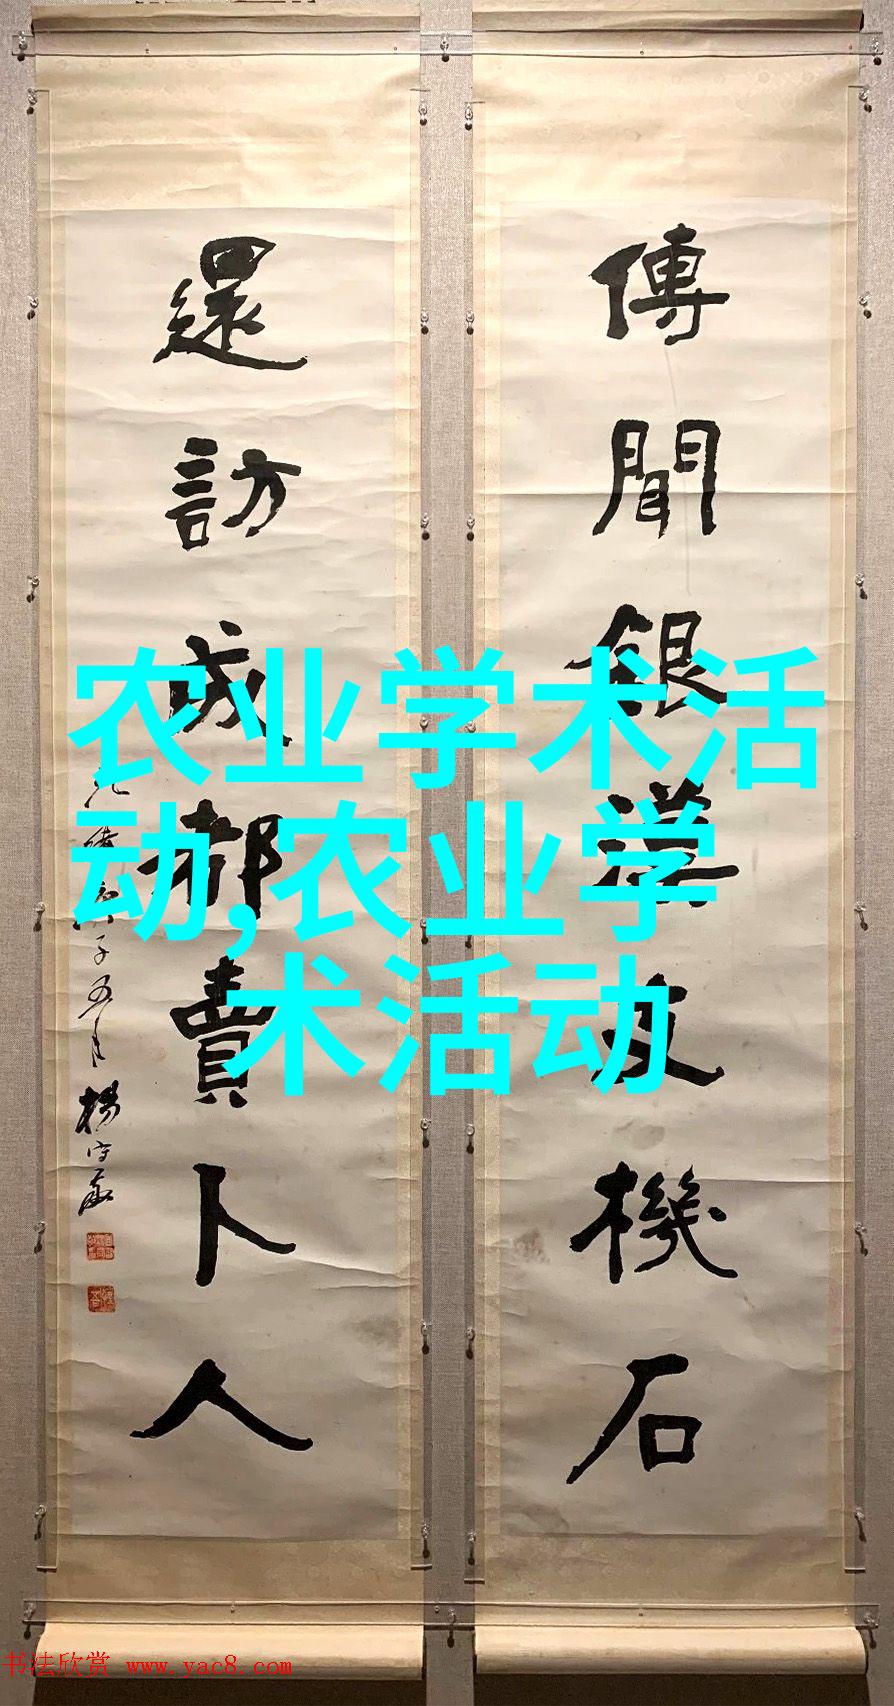 傳聞銀漢支機石
還訪成都賣卜人
光緒庚子五月楊守敬
农业学术活
动,农业学
术活动
书法欣赏 www.yac8.com